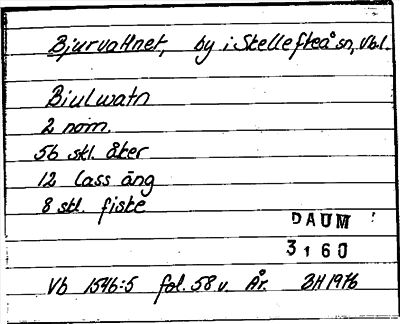 Bjurvattnet, by i Skellefteå sn, Vbl.
Biulwatn
2 nom.
56 skl. åker
12 lass äng
8 skl. fiske
DAUM
3160
Vb 1546:5 fol. 58 v. År. BH 1976